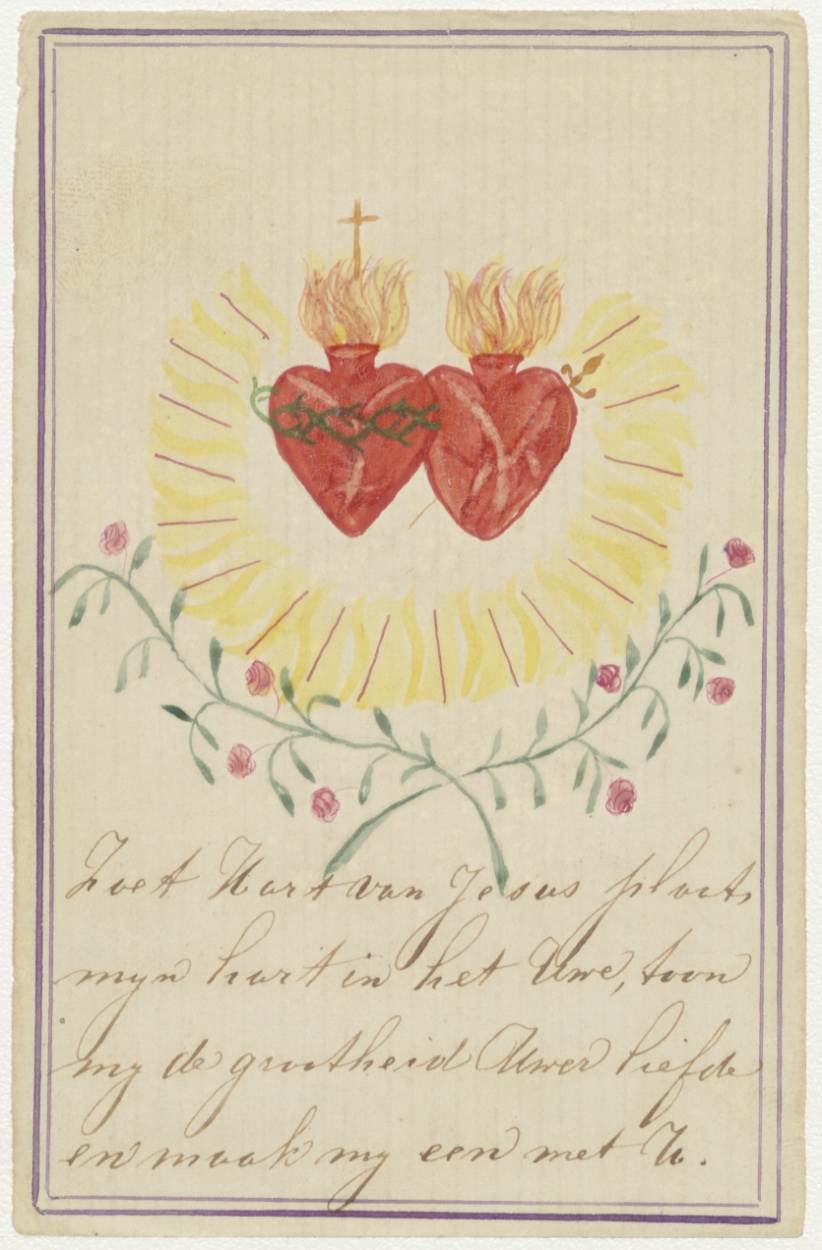 Zoet Hart van Jesus plaats
myn hart in het Uwe, toon
my de grootheid Uwer liefde
en maak my een met U.